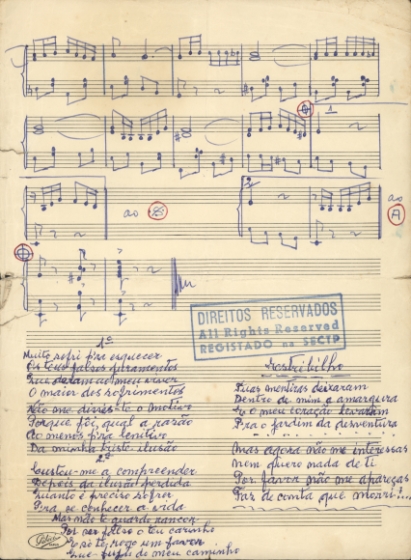 1
2
ao
ao A
DIREITOS RESERVADOS
All Rights Reserved
REGISTADO na SECTP
1º
Muito sofri p'ra esquecer
Os teus falsos juramentos
Que deram ao meu viver
O maior dos sofrimentos
Não me disseste o motivo
Porque foi, qual a razão
Ao menos p'ra lenitivo
Da minha triste ilusão
2º
Custou-me a compreender
Depois da ilusão perdida
Quando é preciso sofrer
P'ra se conhecer a vida
Mas não te guardo rancor
Por ser falso o teu carinho
Só te rogo um favor
Que fujas do meu caminho
Estribilho
Tuas mentiras deixaram
Dentro de mim a amargura
E o meu coração levaram
P'ra o jardim da desventura
Mas agora não me interessas
Nem quero nada de ti
Por favor não me apareças
Faz de conta que morri...